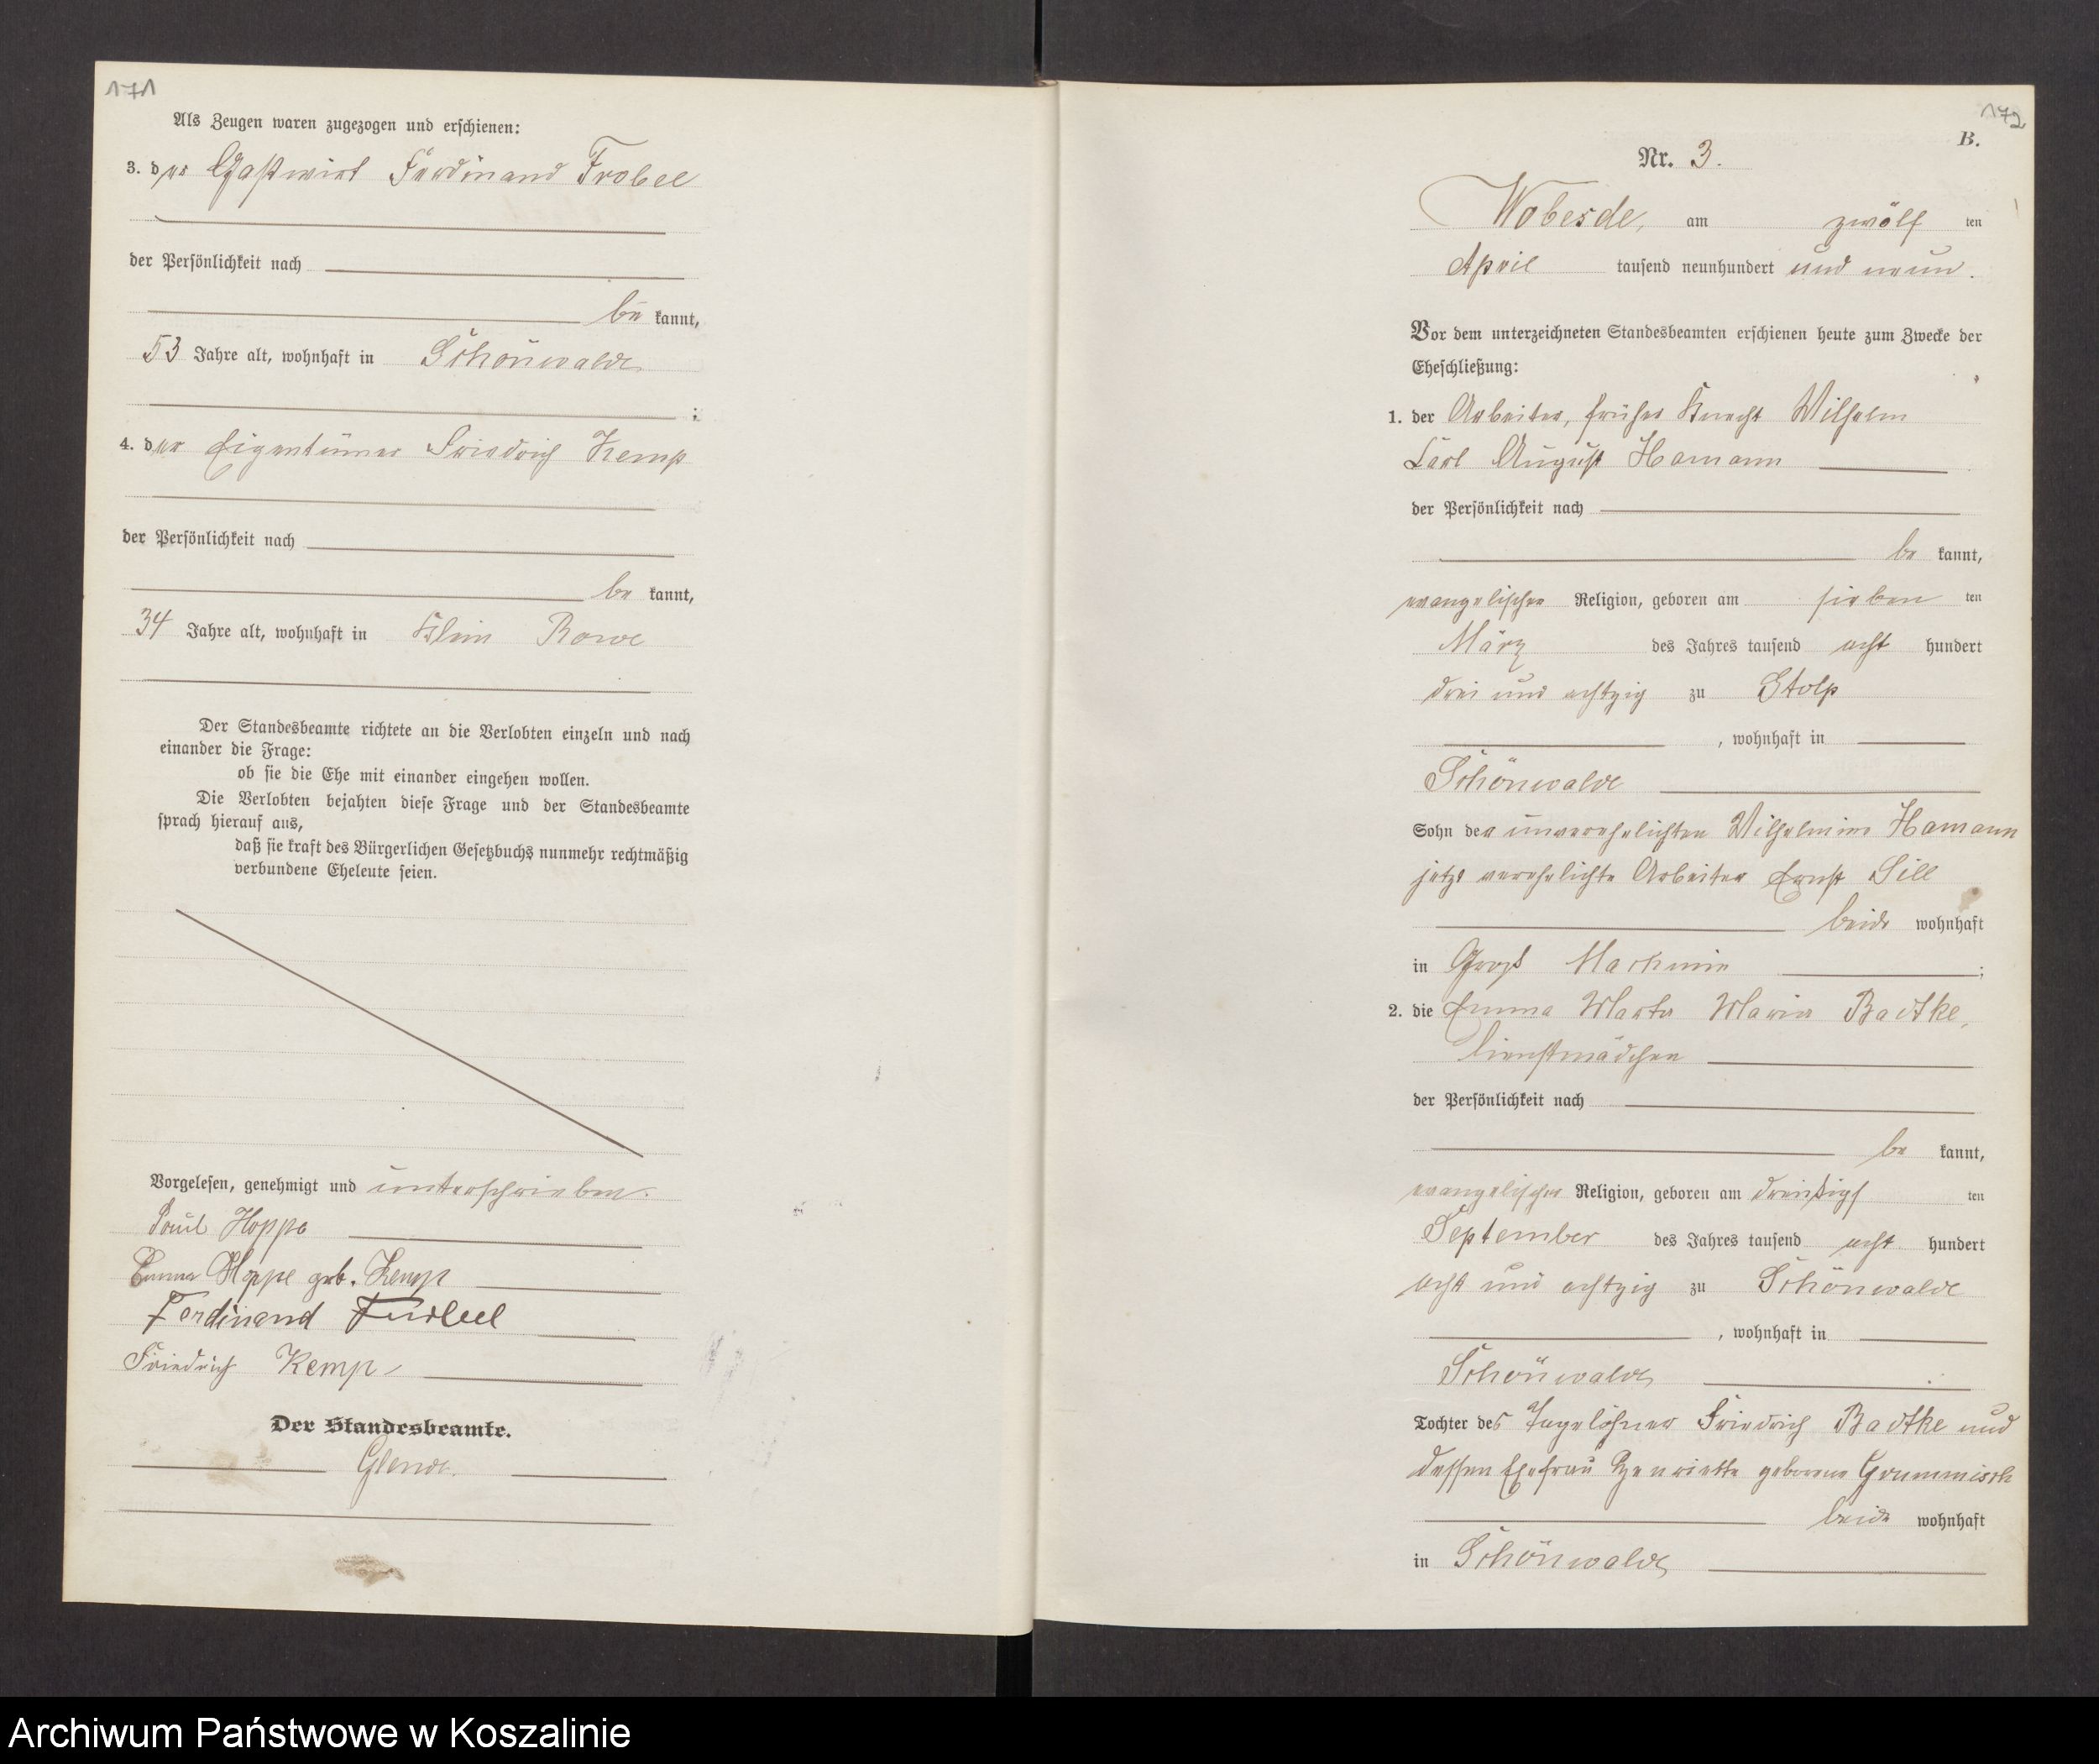 171
Als Zeugen waren zugezogen und erschienen:
3. der Gastwirt Ferdinand Frobel
der Persönlichkeit nach
be kannt,
53 Jahre alt, wohnhaft in Schönwalde
;
4. der Eigentümer Friedrich Kemp
der Persönlichkeit nach
be kannt,
34 Jahre alt, wohnhaft in Klein Rowe
Der Standesbeamte richtete an die Verlobten einzeln und nach
einander die Frage:
ob sie die Ehe mit einander eingehen wollen.
Die Verlobten bejahten diese Frage und der Standesbeamte
sprach hierauf aus,
daß sie kraft des Bürgerlichen Gesetzbuchs nunmehr rechtmäßig
verbundene Eheleute seien.
Vorgelesen, genehmigt und unterschrieben.
Paul Hoppe
Emma Hoppe geb. Kemp
Ferdinand
Friedrich Kemp
Der Standesbeamte.
172
B.
Nr. 3.
Wobesde, am zwölf ten
April tausend neunhundert und neun.
Vor dem unterzeichneten Standesbeamten erschienen heute zum Zwecke der
Eheschließung:
1. der Arbeiter, früher Knecht Wilhelm
Carl August Hamann
der Persönlichkeit nach
be kannt,
evangelischer Religion, geboren am sieben ten
März des Jahres tausend acht hundert
drei und achtzig zu Stolp
, wohnhaft in
Schönwalde
Sohn der unverehelichten Wilhelmine Hamann
jetzt verehelichte Arbeiter Ernst Sill
beide wohnhaft
in Groß Machmin ;
2. die Emma Marta Maria Radtke,
Dienstmädchen
der Persönlichkeit nach
be kannt,
evangelischer Religion, geboren am dreißigs ten
September des Jahres tausend acht hundert
acht und achtzig zu Schönwalde
, wohnhaft in
Schönwalde
Tochter des Tagelöhner Friedrich Radtke und
dessen Ehefrau Henriette geborene Grummisch
beide wohnhaft
in Schönwalde
Archiwum Państwowe w Koszalinie